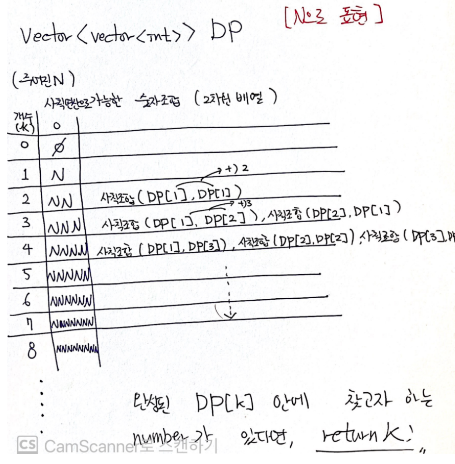 [N으로 표현]
Vector<vector<int>> DP
(주어진 N)
사칙연산으로 가능한 숫자조합 (2차원 배열)
개수
(K) 0
0 ∅
1 N
+) 2
2 NN 사칙조합(DP[1], DP[1])
+) 3
3 NNN 사칙조합(DP[1], DP[2]), 사칙조합(DP[2], DP[1])
4 NNNN 사칙조합(DP[1], DP[3]), 사칙조합(DP[2], DP[2]), 사칙조합(DP[3], D
5 NNNNN
6 NNNNNN
7 NNNNNNN
8 NNNNNNNN
완성된 DP[k] 안에 찾고자 하는
number가 있다면, return K!
CS CamScanner로 스캔하기